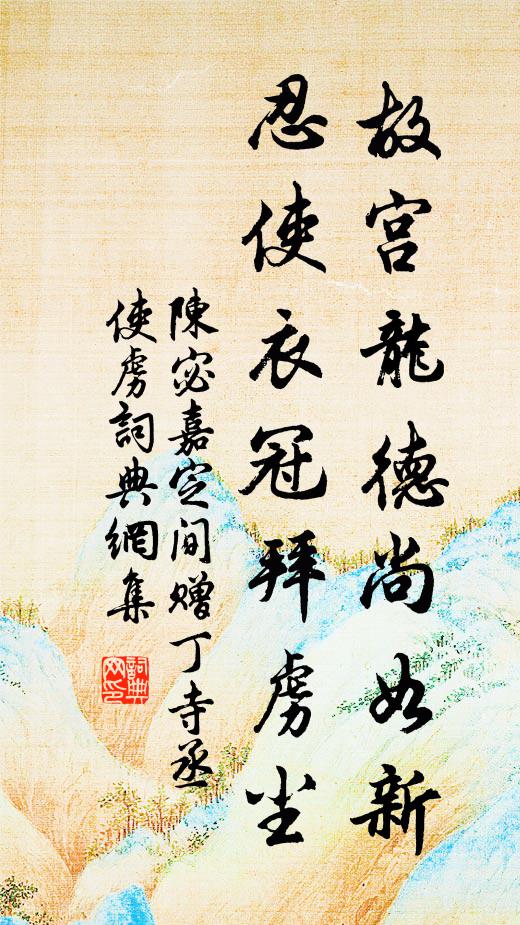 故宫龍德尚如新
忍使衣冠拜虜尘
陳宓嘉定间赠丁寺丞
使虜詞典網集
詞典網印